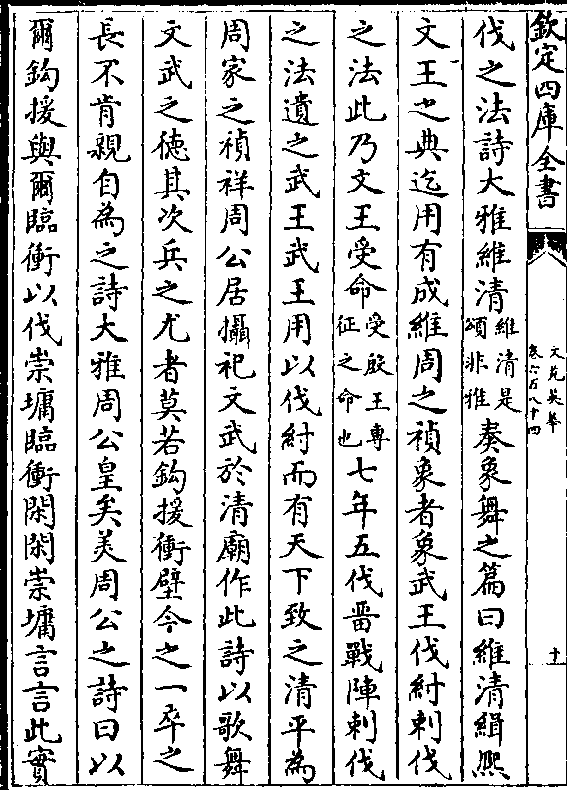 欽定四庫全書
文苑英華
卷六百八十四
十
伐之法詩大雅維清維清是頌非雅奏象舞之篇曰維清緝熙
文王之典迄用有成維周之禎象者象武王伐紂刺伐
之法此乃文王受命受殷王專征之命也七年五伐畱戰陣刺伐
之法遺之武王武王用以伐紂而有天下致之清平為
周家之禎祥周公居攝祀文武於清廟作此詩以歌舞
文武之德其次兵之尤者莫若鈎援衝壁今之一卒之
長不肯親自為之詩大雅周公皇矣美周公之詩曰以
爾鈎援與爾臨衝以伐崇墉臨衝閑閑崇墉言言此實